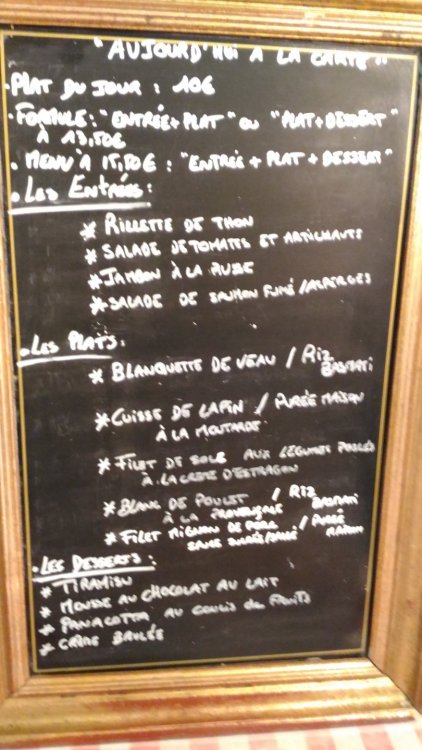 "AUJOURD'HUI A LA CARTE"
• PLAT DU JOUR : 10€
• FORMULE : "ENTRÉE + PLAT" ou "PLAT + DESSERT"
À 13,50€
• MENU À 15,50€ : "ENTRÉE + PLAT + DESSERT"
• LES ENTRÉES :
* RILLETTE DE THON
* SALADE DE TOMATES ET ARTICHAUTS
* JAMBON À LA RUSSE
* SALADE DE SAUMON FUMÉ / ASPERGES
• LES PLATS :
* BLANQUETTE DE VEAU / RIZ
BASMATI
* CUISSE DE LAPIN / PURÉE MAISON
À LA MOUTARDE
* FILET DE SOLE AUX LÉGUMES POELÉS
À LA CREME D'ESTRAGON
* BLANC DE POULET / RIZ
À LA PROVENÇALE BASMATI
* FILET MIGNON DE PORC / PURÉE
SAUCE MAISON
• LES DESSERTS :
* TIRAMISU
* MOUSSE AU CHOCOLAT AU LAIT
* PANACOTTA AU COULIS de FRUITS
* CREME BRULÉE